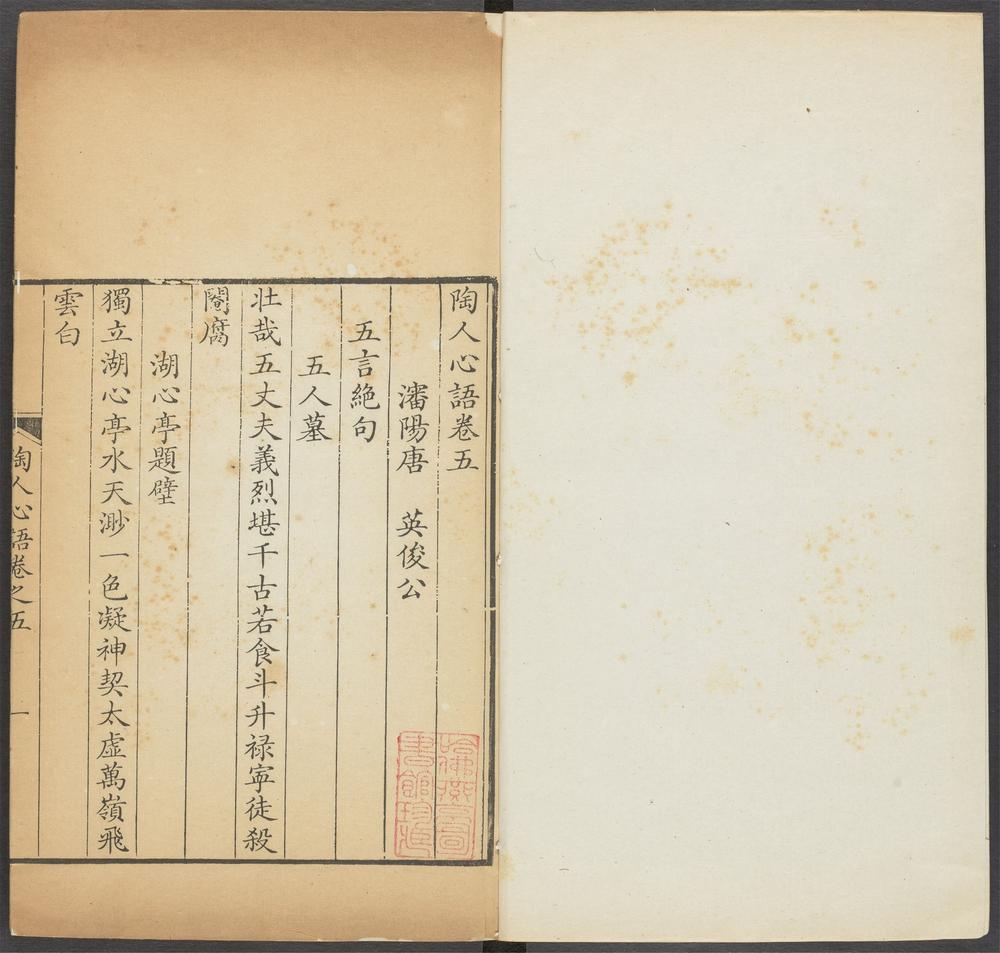 陶人心語卷五
瀋陽唐　英俊公
五言絕句
五人墓
壯哉五丈夫義烈堪千古若食斗升祿寧徒殺
閹腐
湖心亭題壁
獨立湖心亭水天渺一色凝神契太虛萬嶺飛
雲白
陶人心語卷之五　一
哈佛燕京圖
書館珍藏